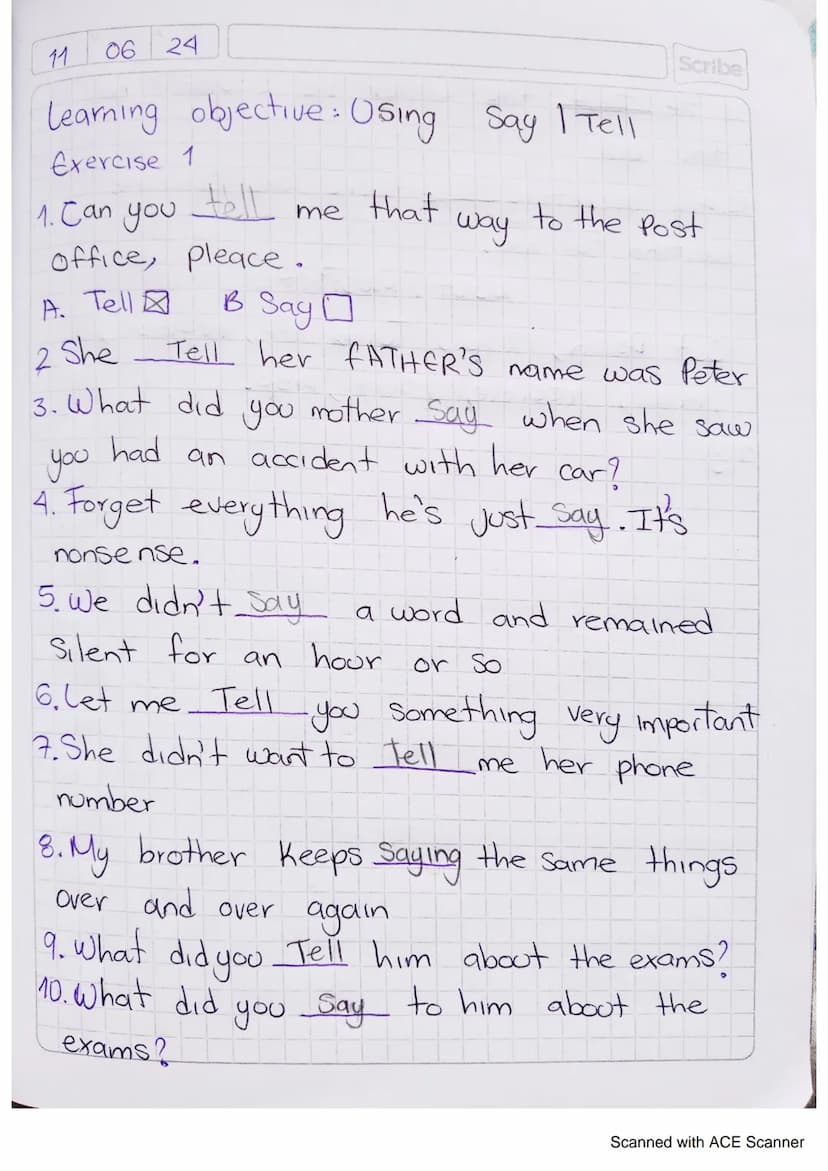 11 06 24
Scribe
Learning objective: Using Say | Tell
Exercise 1
1. Can you tell me that way to the Post
office, pleace.
A. Tell ☒ B Say ☐
2 She Tell her fATHER'S name was Peter
3. What did you mother say when she saw
you had an accident with her car?
4. Forget everything he's just say. It's
nonsense.
5. We didn't say a word and remained
Silent for an hour or so
6. Let me Tell you something very important
7. She didn't want to tell me her phone
number
8. My brother Keeps saying the same things
over and over again
9. What did you Tell him about the exams?
10. What did you say to him about the
exams?
Scanned with ACE Scanner